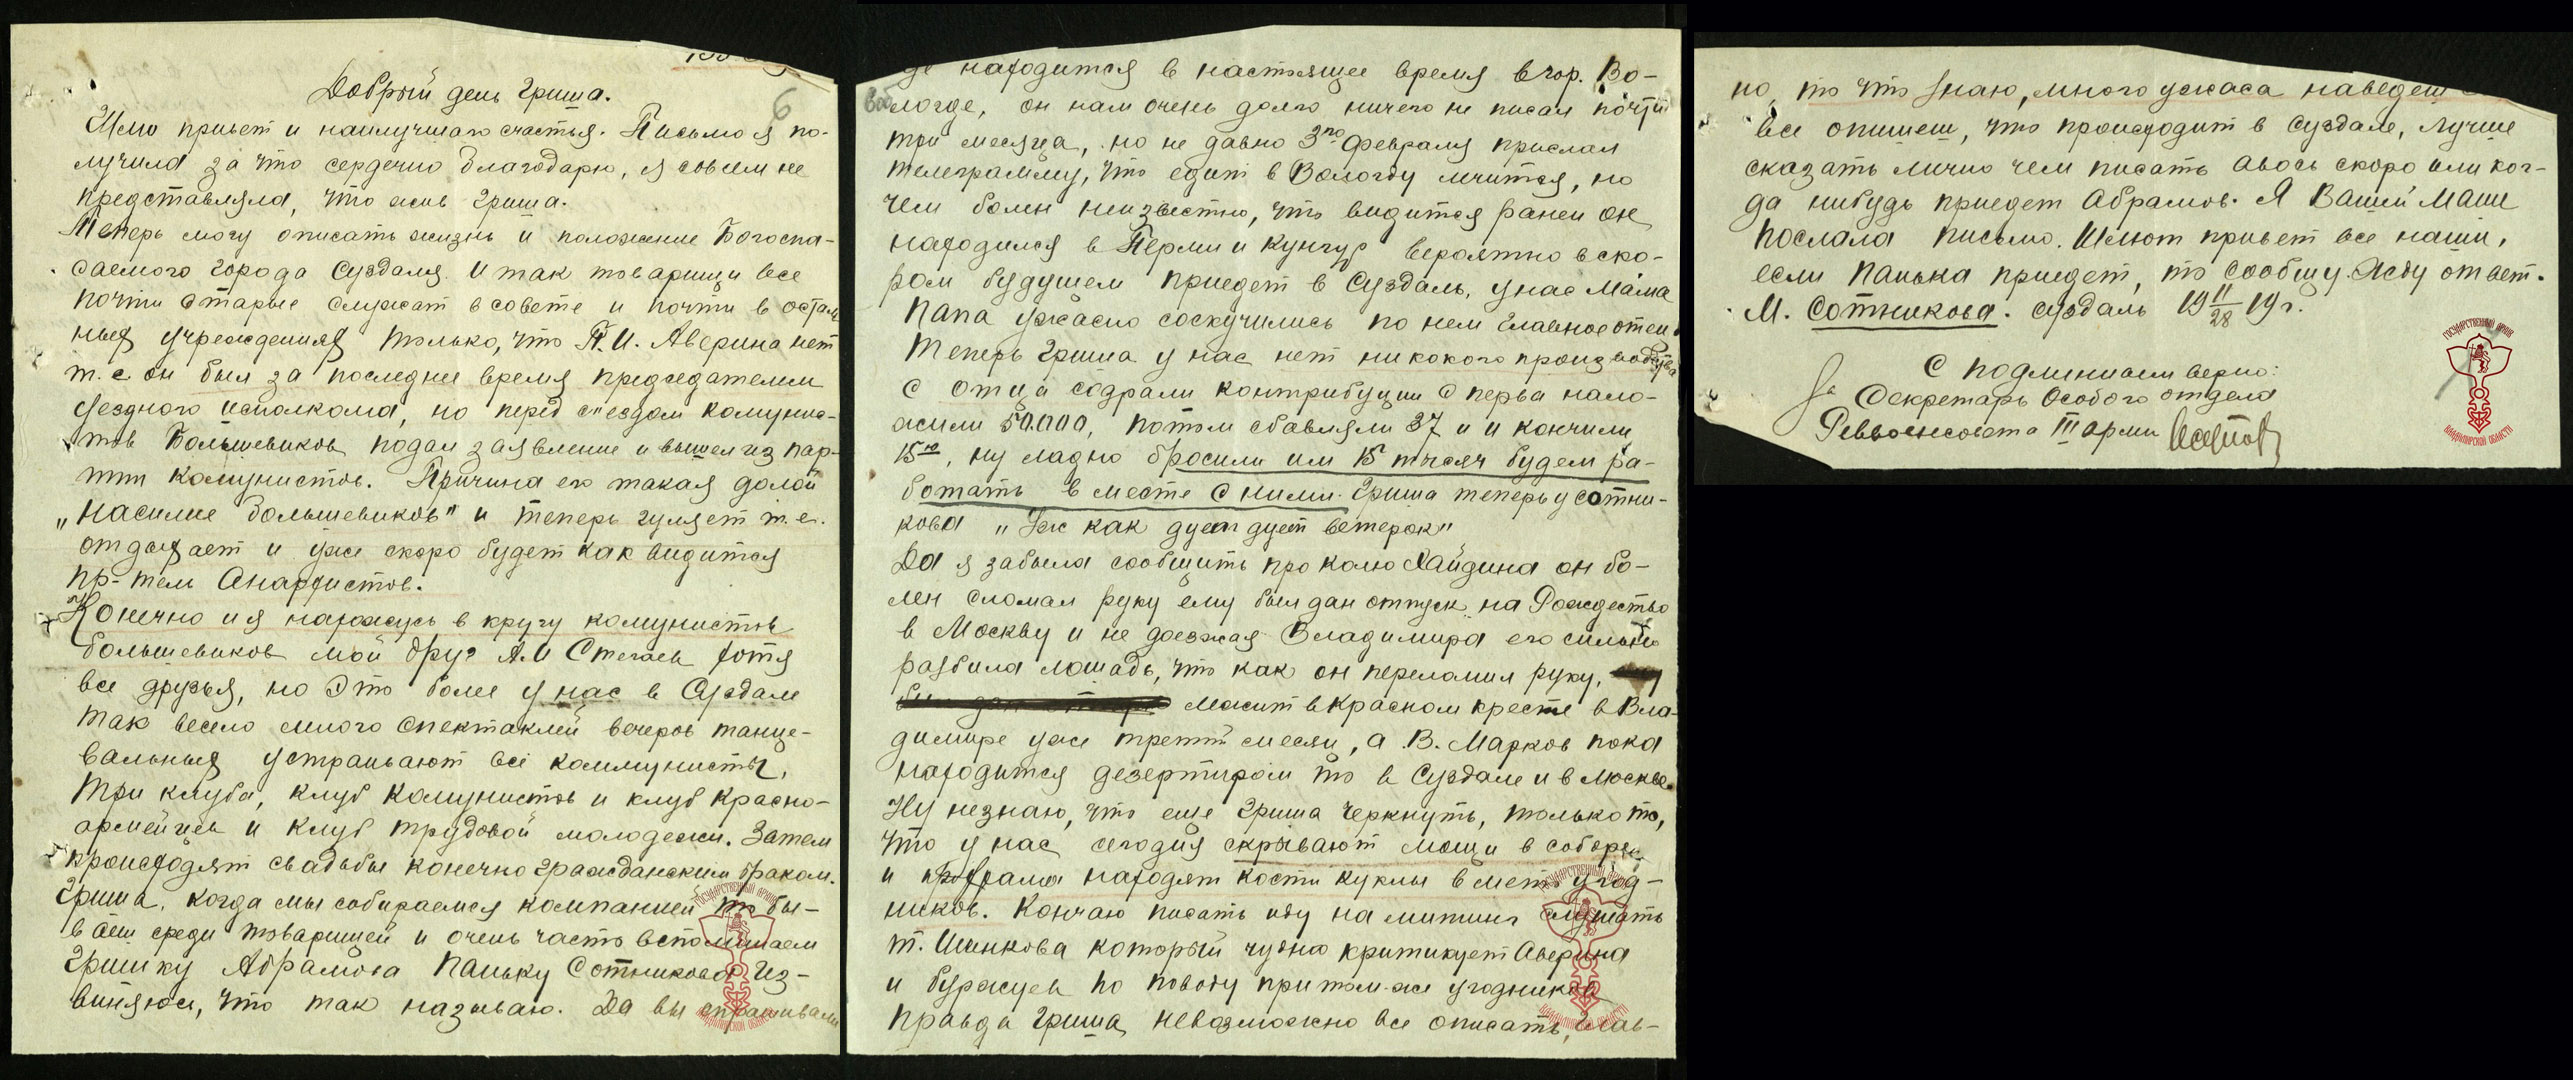 Добрый день Гриша.
6
Шлю привет и наилучшаго счастья. Письмо я по-
лучила за что сердечно благодарю, я совсем не
представляла, что жив Гриша.
Теперь могу описать жизнь и положение Богоспа-
саемого города Суздаля. Итак товарищи все
почти старые служат в совете и почти в осталь
ных учреждениях только, что П.И. Аверина нет
т.е он был за последнее время председателем
уездного исполкома, но перед съездом комунис-
тов Большевиков подал заявление и вышел из пар-
тии комунистов. Причина его такая долой
„насилие большевиков" и теперь гуляет т.е.
отдыхает и уже скоро будет как видится
пр-тем Анархистов.
Конечно и я нахожусь в кругу комунистов
большевиков мой друг А.И Стегаев хотя
все друзья, но Это более у нас в Суздале
так весело много спектаклей вечеров танце-
вальных устраивают все коммунисты,
три клуба, клуб комунистов и клуб красно-
армейцев и клуб трудовой молодежи. Затем
происходят свадьбы конечно гражданским браком.
Гриша, когда мы собираемся компанией то бы-
ваем среди товарищей и очень часто вспоминаем
Гришку Абрамова Паньку Сотникова Из-
виняюсь, что так называю. Да вы спрашивали
где находится в настоящее время в гор. Во-
логде, он нам очень долго ничего не писал почти
три месяца, но не давно 3го февраля прислал
телеграмму, что едит в Вологду лечится, но
чем болен неизвестно, что видится ранен он
находился в Перми и Кунгур вероятно в ско-
ром будущем приедет в Суздаль, у нас Мама
Папа ужасно соскучились по нем главное отец
Теперь Гриша у нас нет никокого производства
с отца содрали контрибуции сперва нало-
жили 50.000, потом сбавляли 37 и и кончили
15ю, ну ладно бросили им 15 тысяч будем ра-
ботать в месте с ними. Гриша теперь у Сотни-
кова „Уж как дует дует ветерок"
Да я забыла сообщить про Колю Хайдина он бо-
лен сломал руку ему был дан отпуск на Рождество
в Москву и не доезжая Владимира его сильно
разбила лошадь, что как он переломил руку,
лежит в Красном кресте в Вла-
димире уже третий месяц, а В. Марков пока
находится дезертиром то в Суздале и в Москве.
Ну незнаю, что еще Гриша черкнуть, только то,
что у нас сегодня скрывают мощи в соборе
и находят кости куклы в место угод-
ников. Кончаю писать иду на митинг слушать
т. Шинкова который чудно критикует Аверина
и буржуев по поводу притом-же угодников
Правда Гриша, невозможно все описать, глав-
но, то что знаю, много ужаса наведеш
все опишеш, что происходит в Суздале, лучше
сказать лично чем писать авось скоро или ког-
да нибудь приедет Абрамов. Я Вашей Маше
послала письмо. Шлют привет все наши,
если Панька приедет, то сообщу. Жду ответ.
М. Сотникова. Суздаль 19 II/28 19г.
С подлинным верно:
За Секретарь Особого отдела
Реввоенсовета III армии
ГОСУДАРСТВЕННЫЙ АРХИВ
ВЛАДИМИРСКОЙ ОБЛАСТИ